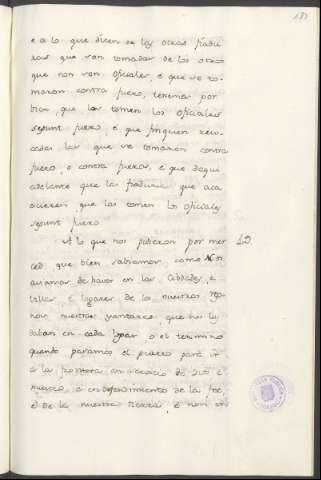 187
e a lo que dicen de las otras fiadu
rias que son tomadas de los otros
que non son oficiales, e que se to-
maron contra fuero, tenemos por
bien, que las tomen los oficiales
segunt fuero, e que finquen revo-
cadas las que se tomaron contra
fuero, o contra fueros, e que daqui
adelante que las fiadurias que aca
escieren, que las tomen los oficiales
segunt fuero.
A lo que nos pidieron por mer 20.
ced, que bien sabiamos como Nos
aviamos de haver en las Cibdades, e
villas, e lugares de los nuestros rey-
nos nuestros yantares, que nos los
daban en cada lugar o el termino
quando pasamos el puerto para ir
a la frontera en servicio de Dios e
nuestro, e en defendimiento de la fee,
e de la nuestra tierra, e non en